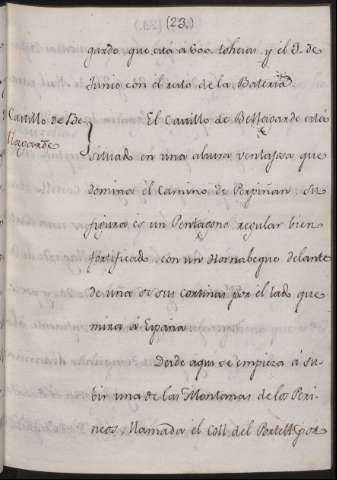 (23.)
garde, que está a 600 tohesas, y el 3. de
Junio con el resto de la Bateria.
Castillo de Be-
llegarde
El Castillo de Bellegarde está
situado en una altura ventajosa que
domina el Camino de Perpiñan: su
figura es un Pentagono regular bien
fortificado, con un Hornabeque delante
de una de sus cortinas por el lado que
mira á España.
Desde aqui se empieza á su-
bir una de las Montañas de los Peri-
neos, llamada el Coll del Portell, por